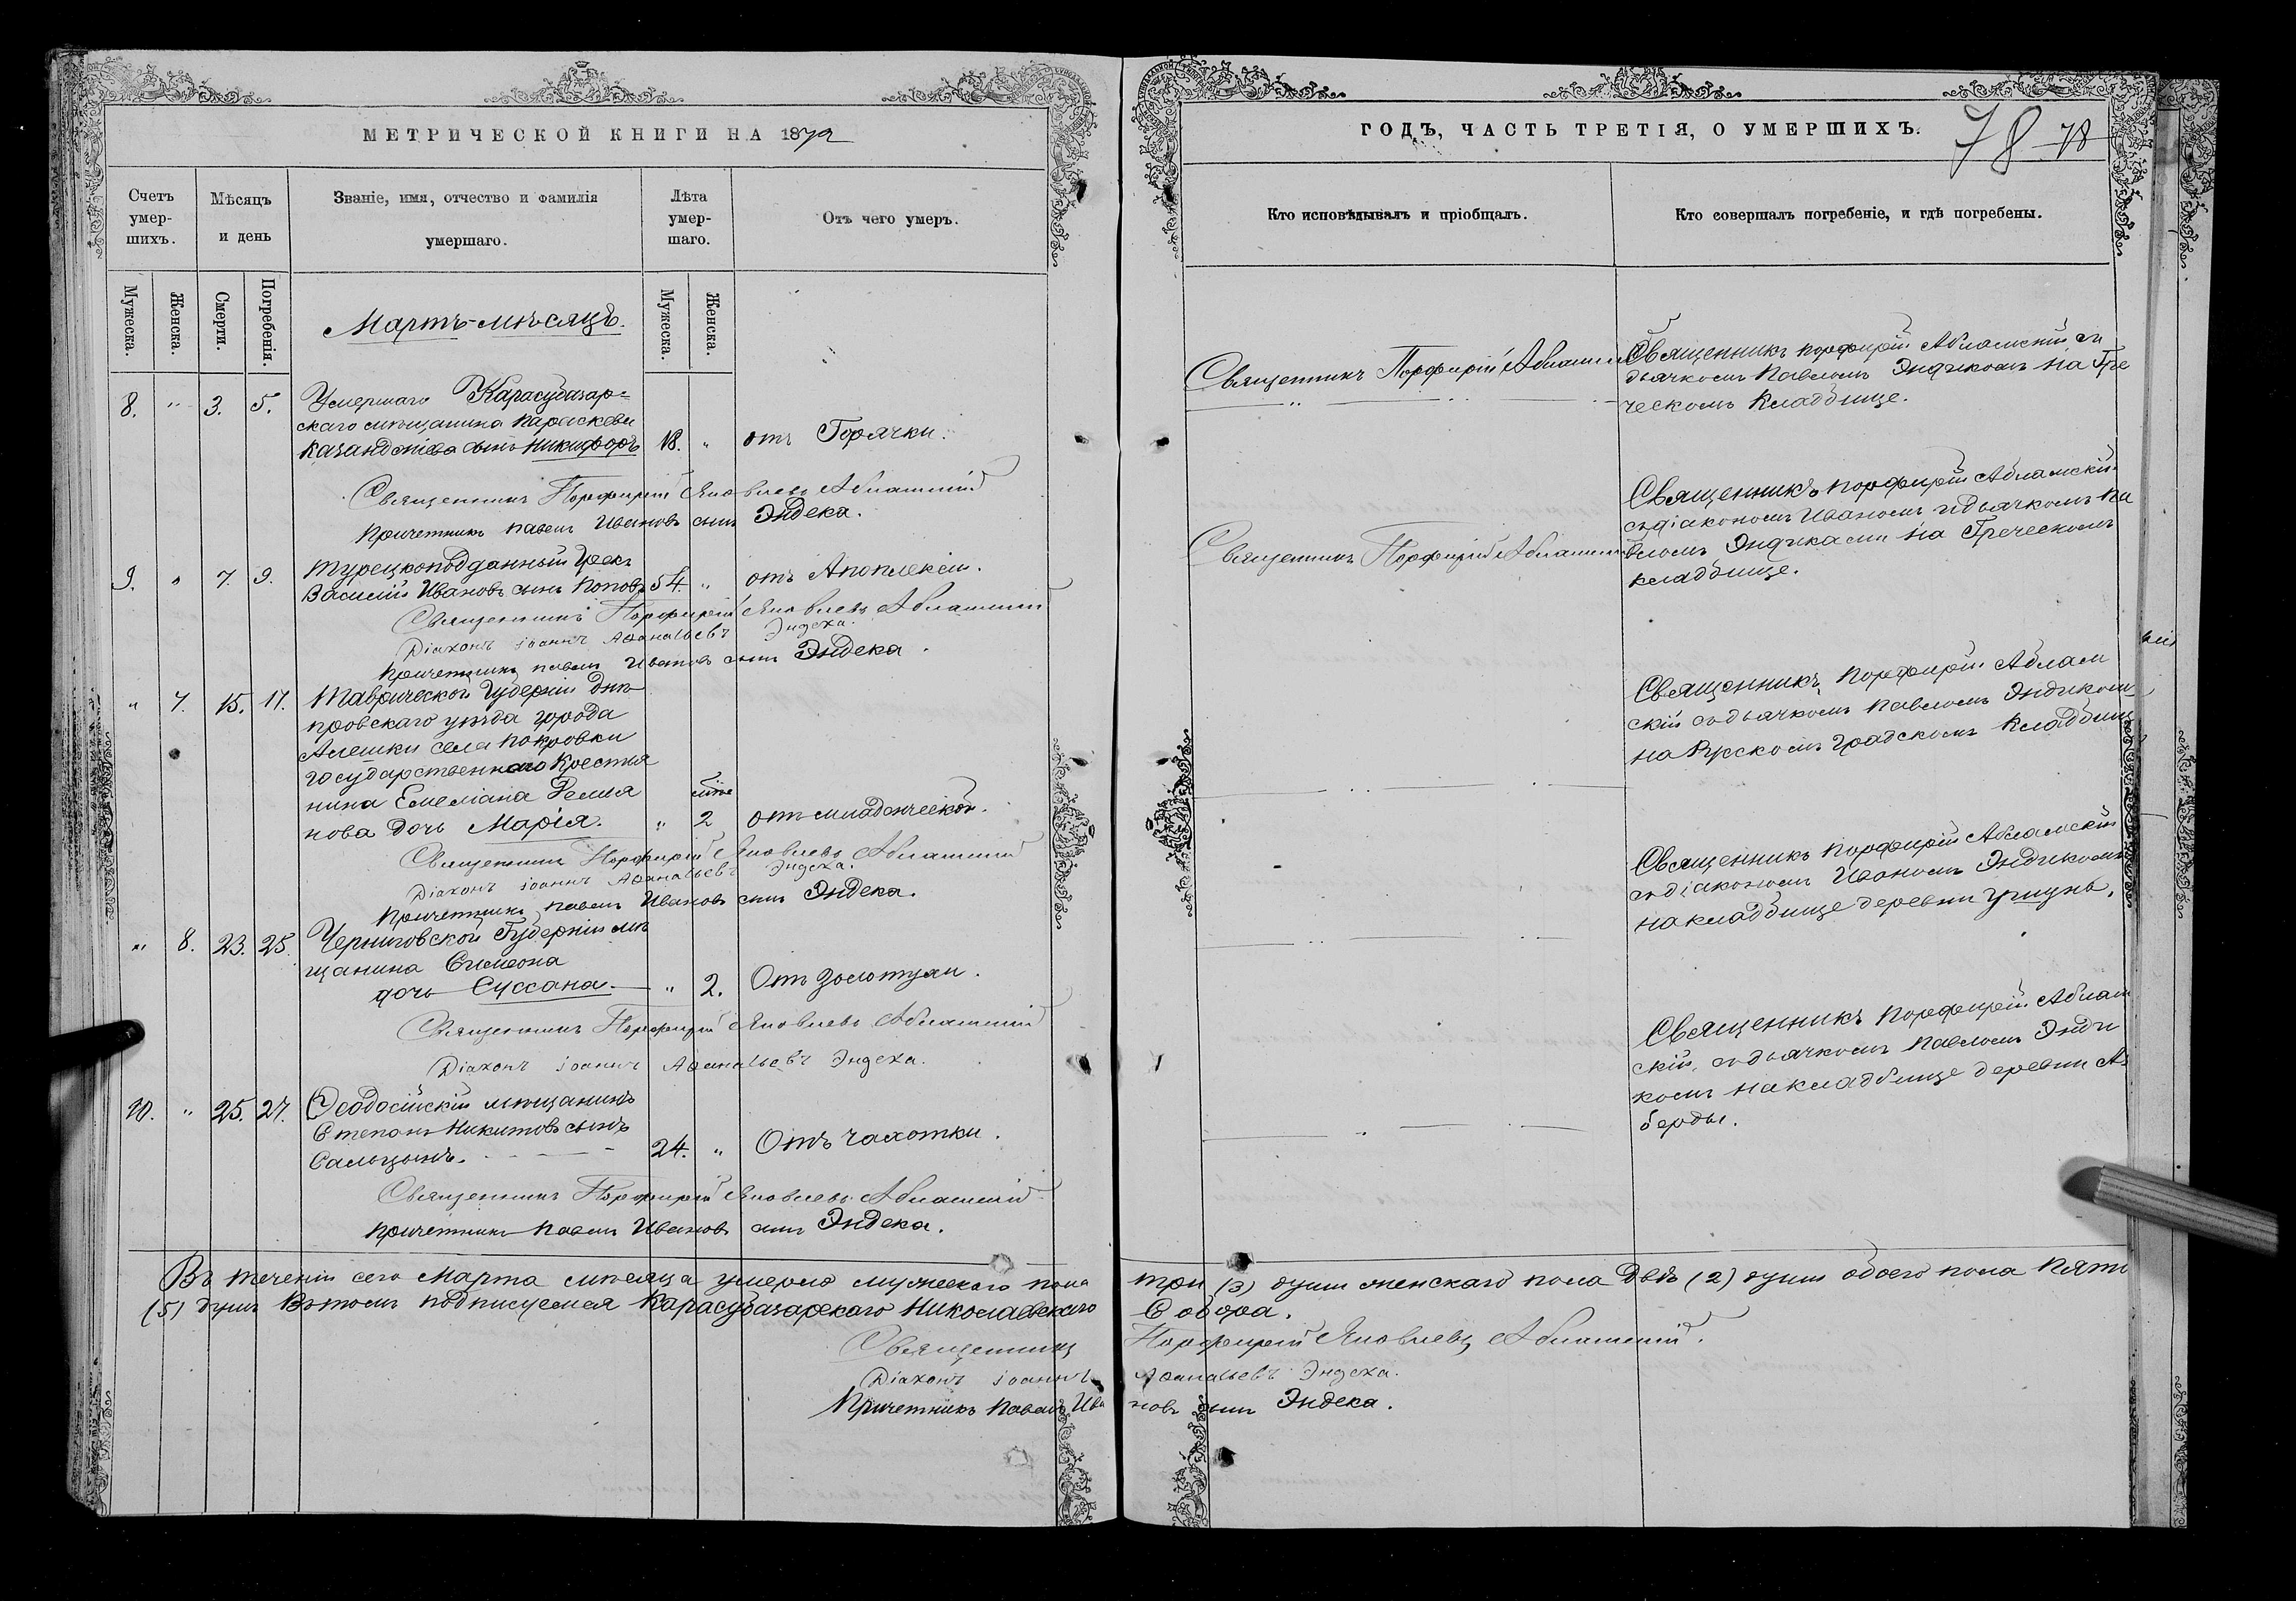 МЕТРИЧЕСКОЙ КНИГИ НА 1872
ГОДЪ, ЧАСТЬ ТРЕТІЯ, О УМЕРШИХЪ.
78 78
Счетъ умер-шихъ.
Мѣсяцъ и день
Званіе, имя, отчество и фамилія умершаго.
Лѣта умер-шаго.
Отъ чего умеръ.
Кто исповѣдывалъ и пріобщалъ.
Кто совершалъ погребеніе, и гдѣ погребены.
Мужеска.
Женска.
Смерти.
Погребенія.
Мужеска.
Женска.
Мартъ-мѣсяцъ.
8. " 3. 5. Умершаго Карасубазар=
скаго мѣщанина Параскеви
Казанджіева сынъ Никифоръ 18. " отъ Горячки.
Священникъ Порфирій Яковлевъ Абламскій
Причетникъ Павелъ Ивановъ сынъ Эндека.
Священникъ Порфирій Абламскій
Священникъ Порфирій Абламскій съ
дьячкомъ Павломъ Эндѣкомъ на Гре
ческомъ Кладбище.
9. " 7. 9. Турецкоподданный Грекъ
Василій Ивановъ сынъ Поповъ 54. " отъ Апоплексіи.
Священникъ Порфирій Яковлевъ Абламскій
Діаконъ Іоаннъ Аѳанасьевъ Эндека.
Причетникъ Павелъ Ивановъ сынъ Эндека.
Священникъ Порфирій Абламскій
Священникъ Порфирій Абламскій
съ діакономъ Иваномъ и дьячкомъ Па
вломъ Эндѣками на Греческомъ
кладбище.
" 7. 15. 17. Таврической Губерніи Днѣ
провскаго уѣзда города
Алешки села Покровки
государственнаго Крестья
нина Емеліана Демья
нова дочь Марія. " 2 отъ младенческой.
Священникъ Порфирій Яковлевъ Абламскій
Діаконъ Іоаннъ Аѳанасьевъ Эндека.
Причетникъ Павелъ Ивановъ сынъ Эндека.
Священникъ Порфирій Аблам
скій съ дьячкомъ Павломъ Эндѣкомъ
на Рускомъ градскомъ Кладбищ
" 8. 23. 25. Черниговской Губерніи мѣ
щанина Симеона
дочь Суссана. " 2. Отъ золотухи.
Священникъ Порфирій Яковлевъ Абламскій
Діаконъ Іоаннъ Аѳанасьевъ Эндека.
Священникъ Порфирій Абламскій
съ діакономъ Иваномъ Эндѣкомъ
на кладбище деревни
10. " 25. 27. Ѳеодосійскій мѣщанинъ
Степанъ Никитовъ сынъ
Сальцынъ. 24. " Отъ чахотки.
Священникъ Порфирій Яковлевъ Абламскій
Причетникъ Павелъ Ивановъ сынъ Эндека.
Священникъ Порфирій Аблам
скій, съ дьячкомъ Павломъ Эндѣ
комъ на кладбище деревни
берды.
Въ теченіи сего Марта мѣсяца умерло мужескаго пола три (3) души женскаго пола двѣ (2) души обоего пола пять
(5) душъ въ томъ подписуемся Карасубазарскаго Николаевскаго Собора.
Священникъ Порфирій Яковлевъ Абламскій.
Діаконъ Іоаннъ Аѳанасьевъ Эндека.
Причетникъ Павелъ Ивановъ сынъ Эндека.